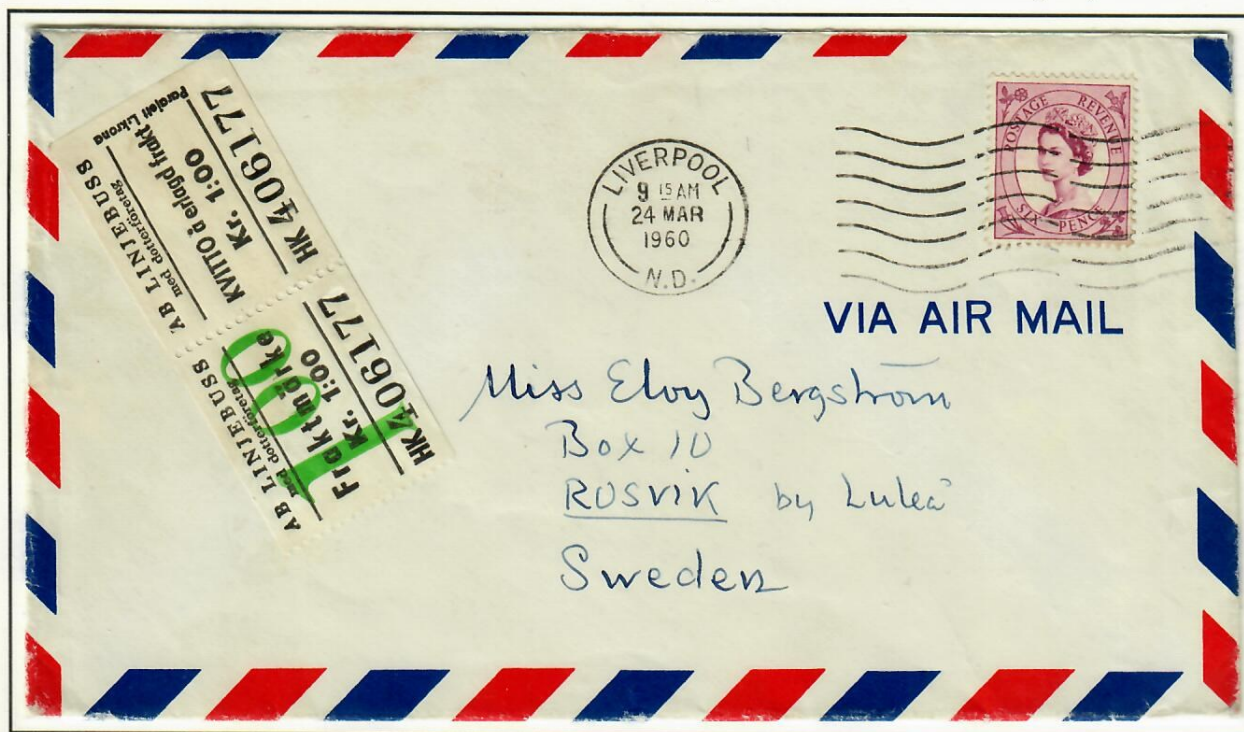 AB LINJEBUSS
med dotterföretag
KVITTO å erlagd frakt
Kr. 1:00
HK 406177
Parajett Likrona
AB LINJEBUSS
med dotterföretag
Fraktmärke
Kr. 1:00
100
HK 406177
LIVERPOOL
9 15 AM
24 MAR
1960
N.D.
POSTAGE REVENUE
SIX PENCE
VIA AIR MAIL
Miss Elvy Bergström
Box 10
ROSVIK by Luleå
Sweden